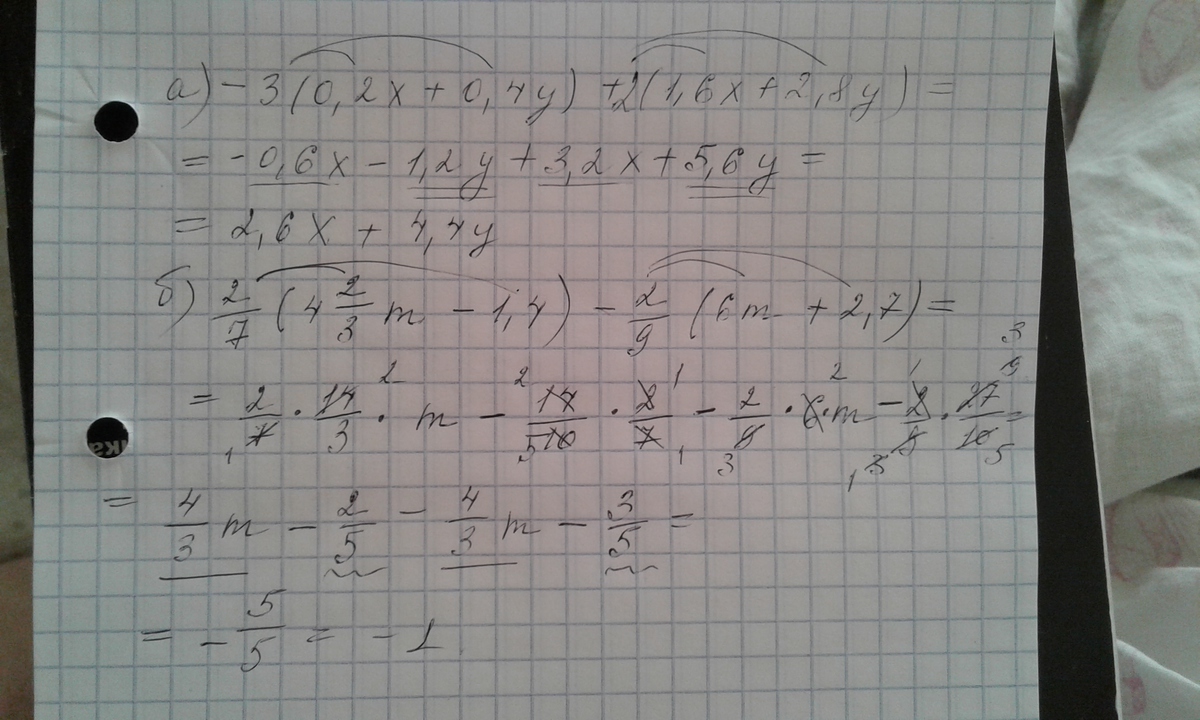 а) -3(0,2x + 0,4y) + 2(1,6x + 2,8y) =
= -0,6x - 1,2y + 3,2x + 5,6y =
= 2,6x + 4,4y
б) 2/7 (4 2/3 m - 1,4) - 2/9 (6m + 2,7) =
= 2/7 · 14/3 · m - 14/10 · 2/7 - 2/9 · 6·m - 2/9 · 27/10 =
= 4/3 m - 2/5 - 4/3 m - 3/5 =
= - 5/5 = -1